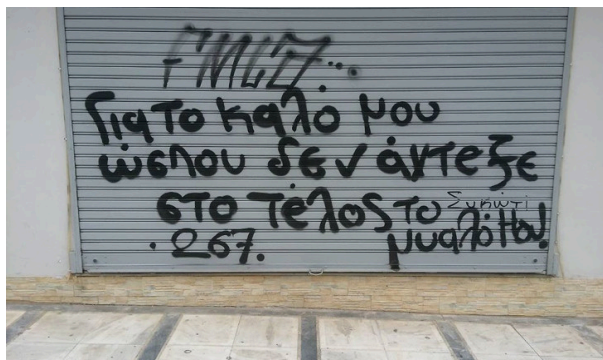 Για το καλό μου
ώσπου δεν άντεξε
στο τέλος το Συκώτι
.267. μυαλό μου!